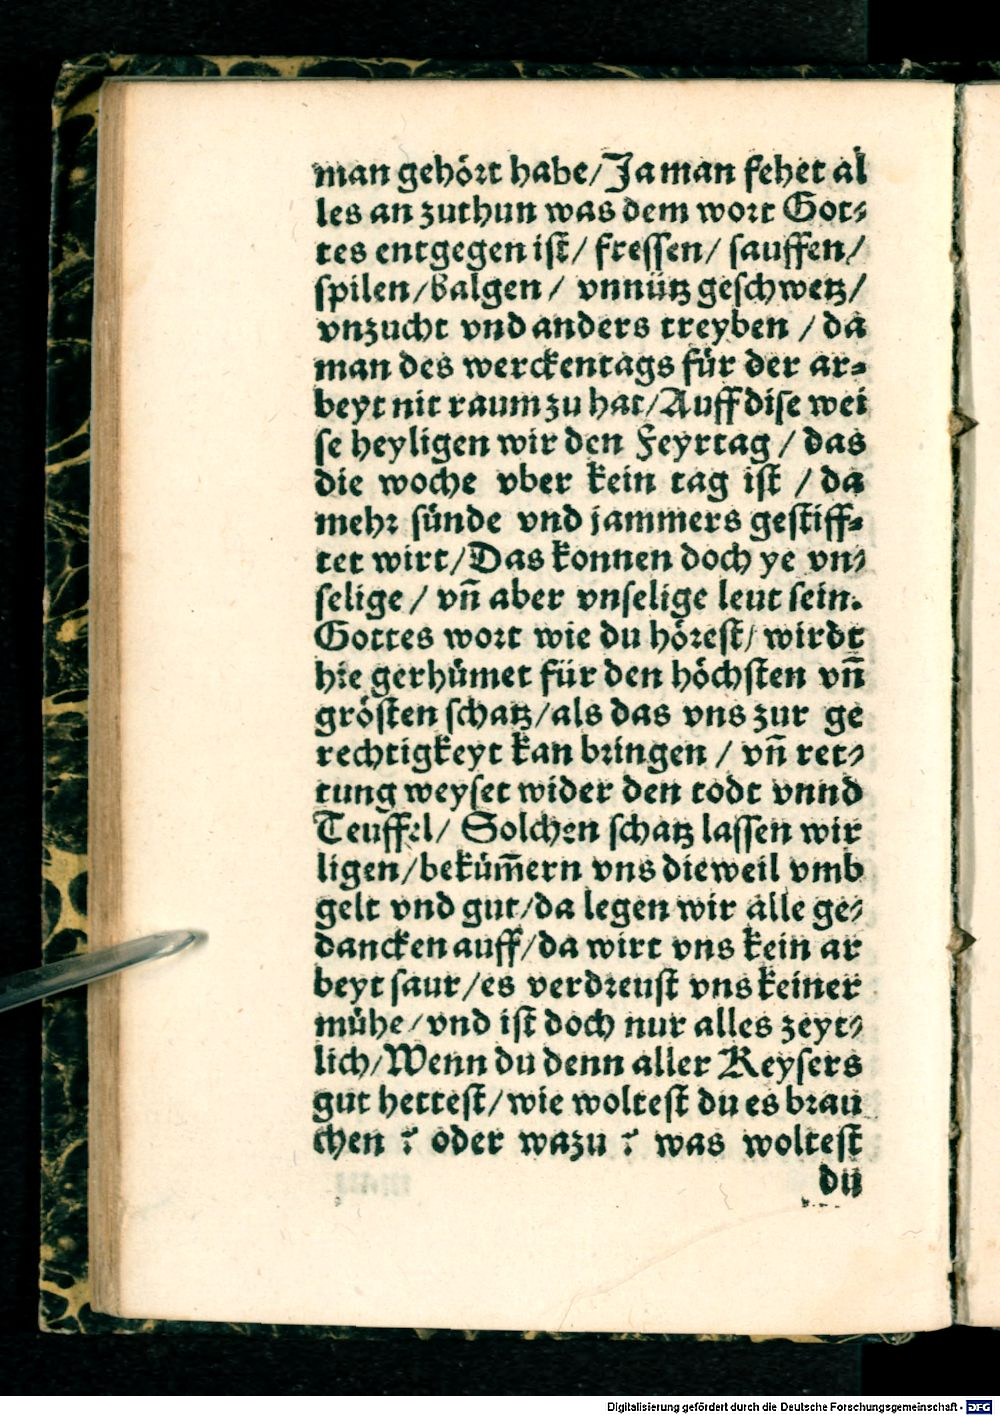 man gehört habe/ Ja man fehet al
les an zuthun was dem wort Got⸗
tes entgegen ist/ fressen/ sauffen/
spilen/ balgen/ vnnütz geschwetz/
vnzucht vnd anders treyben / da
man des werckentags für der ar⸗
beyt nit raum zu hat/ Auff dise wei
se heyligen wir den Feyrtag / das
die woche vber kein tag ist / da
mehr sünde vnd jammers gestiff⸗
tet wirt/ Das konnen doch ye vn⸗
selige / vn̄ aber vnselige leut sein.
Gottes wort wie du hörest/ wirdt
hie gerhümet für den höchsten vn̄
grösten schatz/ als das vns zur ge
rechtigkeyt kan bringen / vn̄ ret⸗
tung weyset wider den todt vnnd
Teuffel/ Solchen schatz lassen wir
ligen/ beküm̄ern vns dieweil vmb
gelt vnd gut/ da legen wir alle ge⸗
dancken auff/ da wirt vns kein ar
beyt saur/ es verdreust vns keiner
mühe/ vnd ist doch nur alles zeyt⸗
lich/ Wenn du denn aller Keysers
gut hettest/ wie woltest du es brau
chen ? oder wazu ? was woltest
du
Digitalisierung gefördert durch die Deutsche Forschungsgemeinschaft - DFG